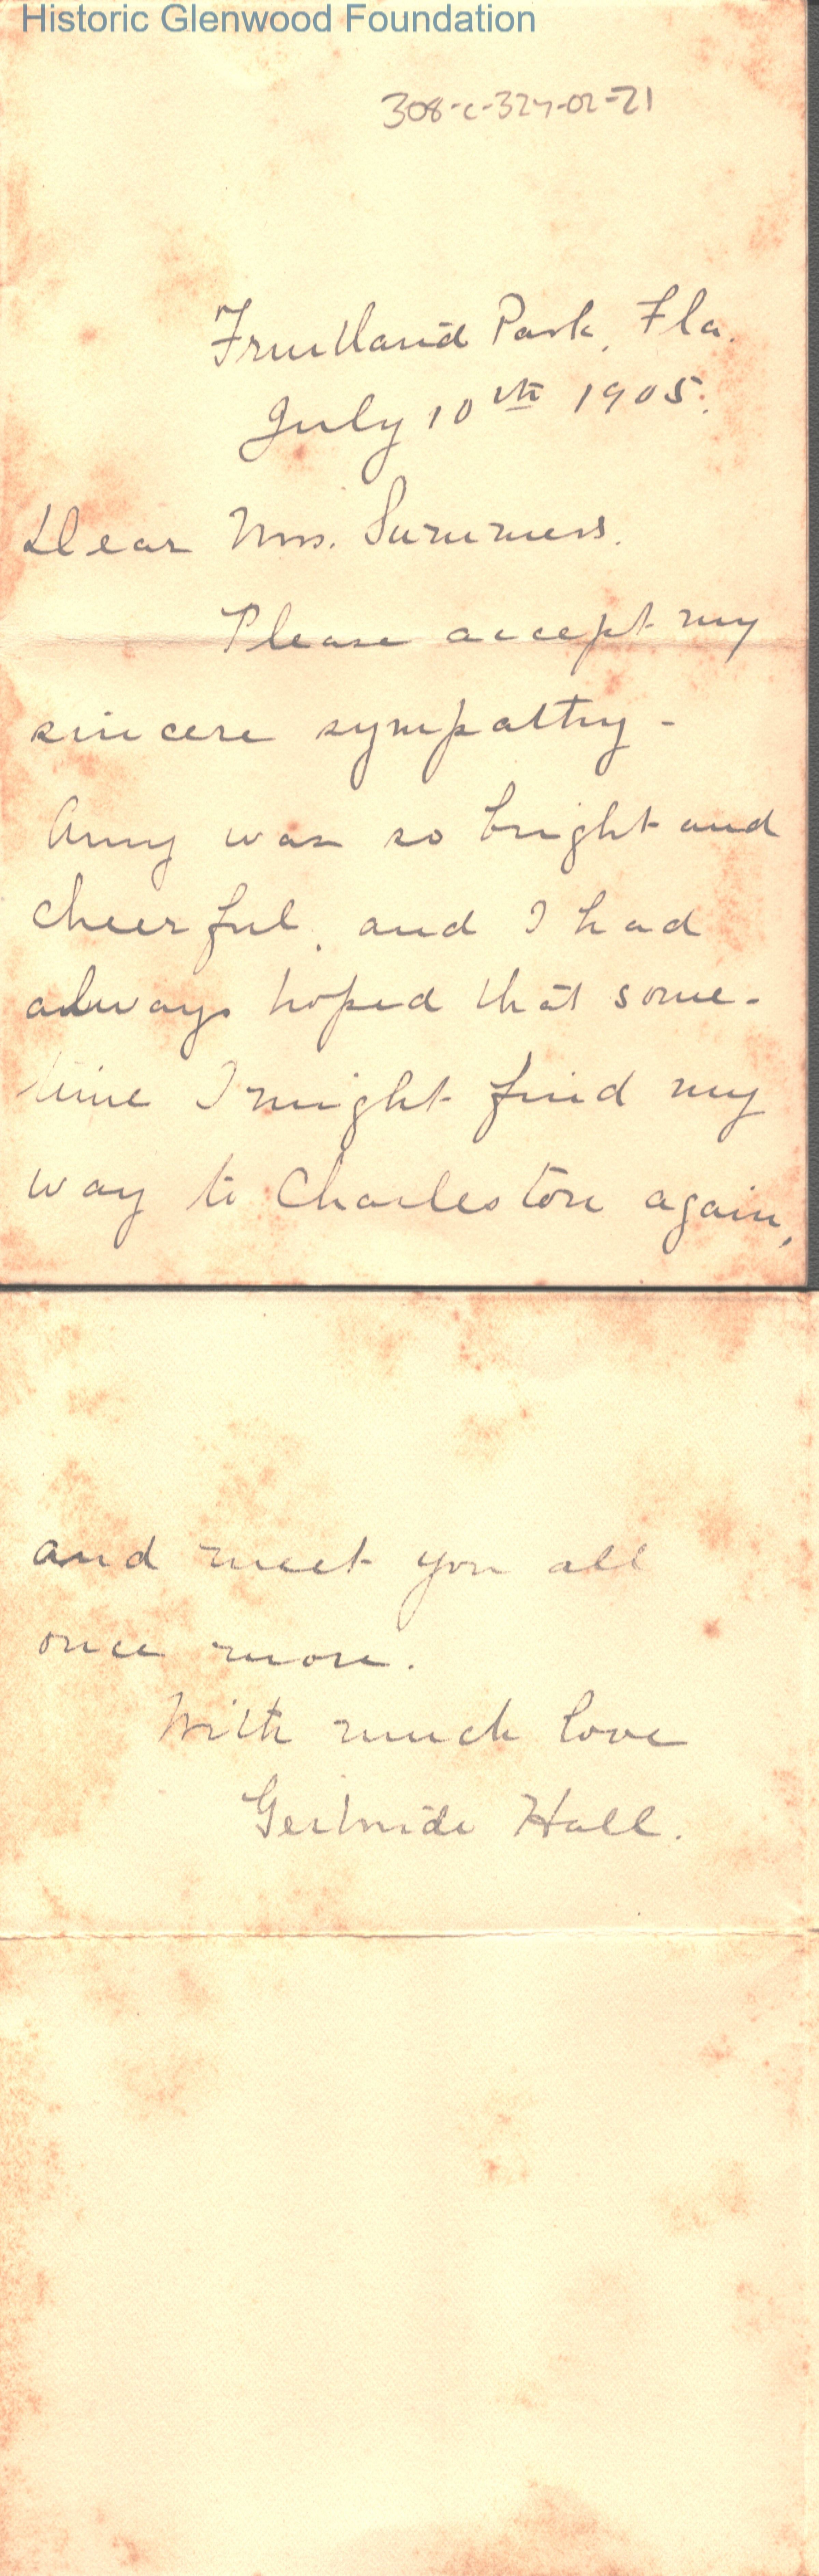 Historic Glenwood Foundation
308-c-324-02-21
Fruitland Park, Fla.
July 10th 1905.
Dear Mrs. Summers.
Please accept my
sincere sympathy -
Amy was so bright and
cheerful, and I had
always hoped that some-
time I might find my
way to Charleston again,
and meet you all
once more.
With much love
Gertrude Hall.